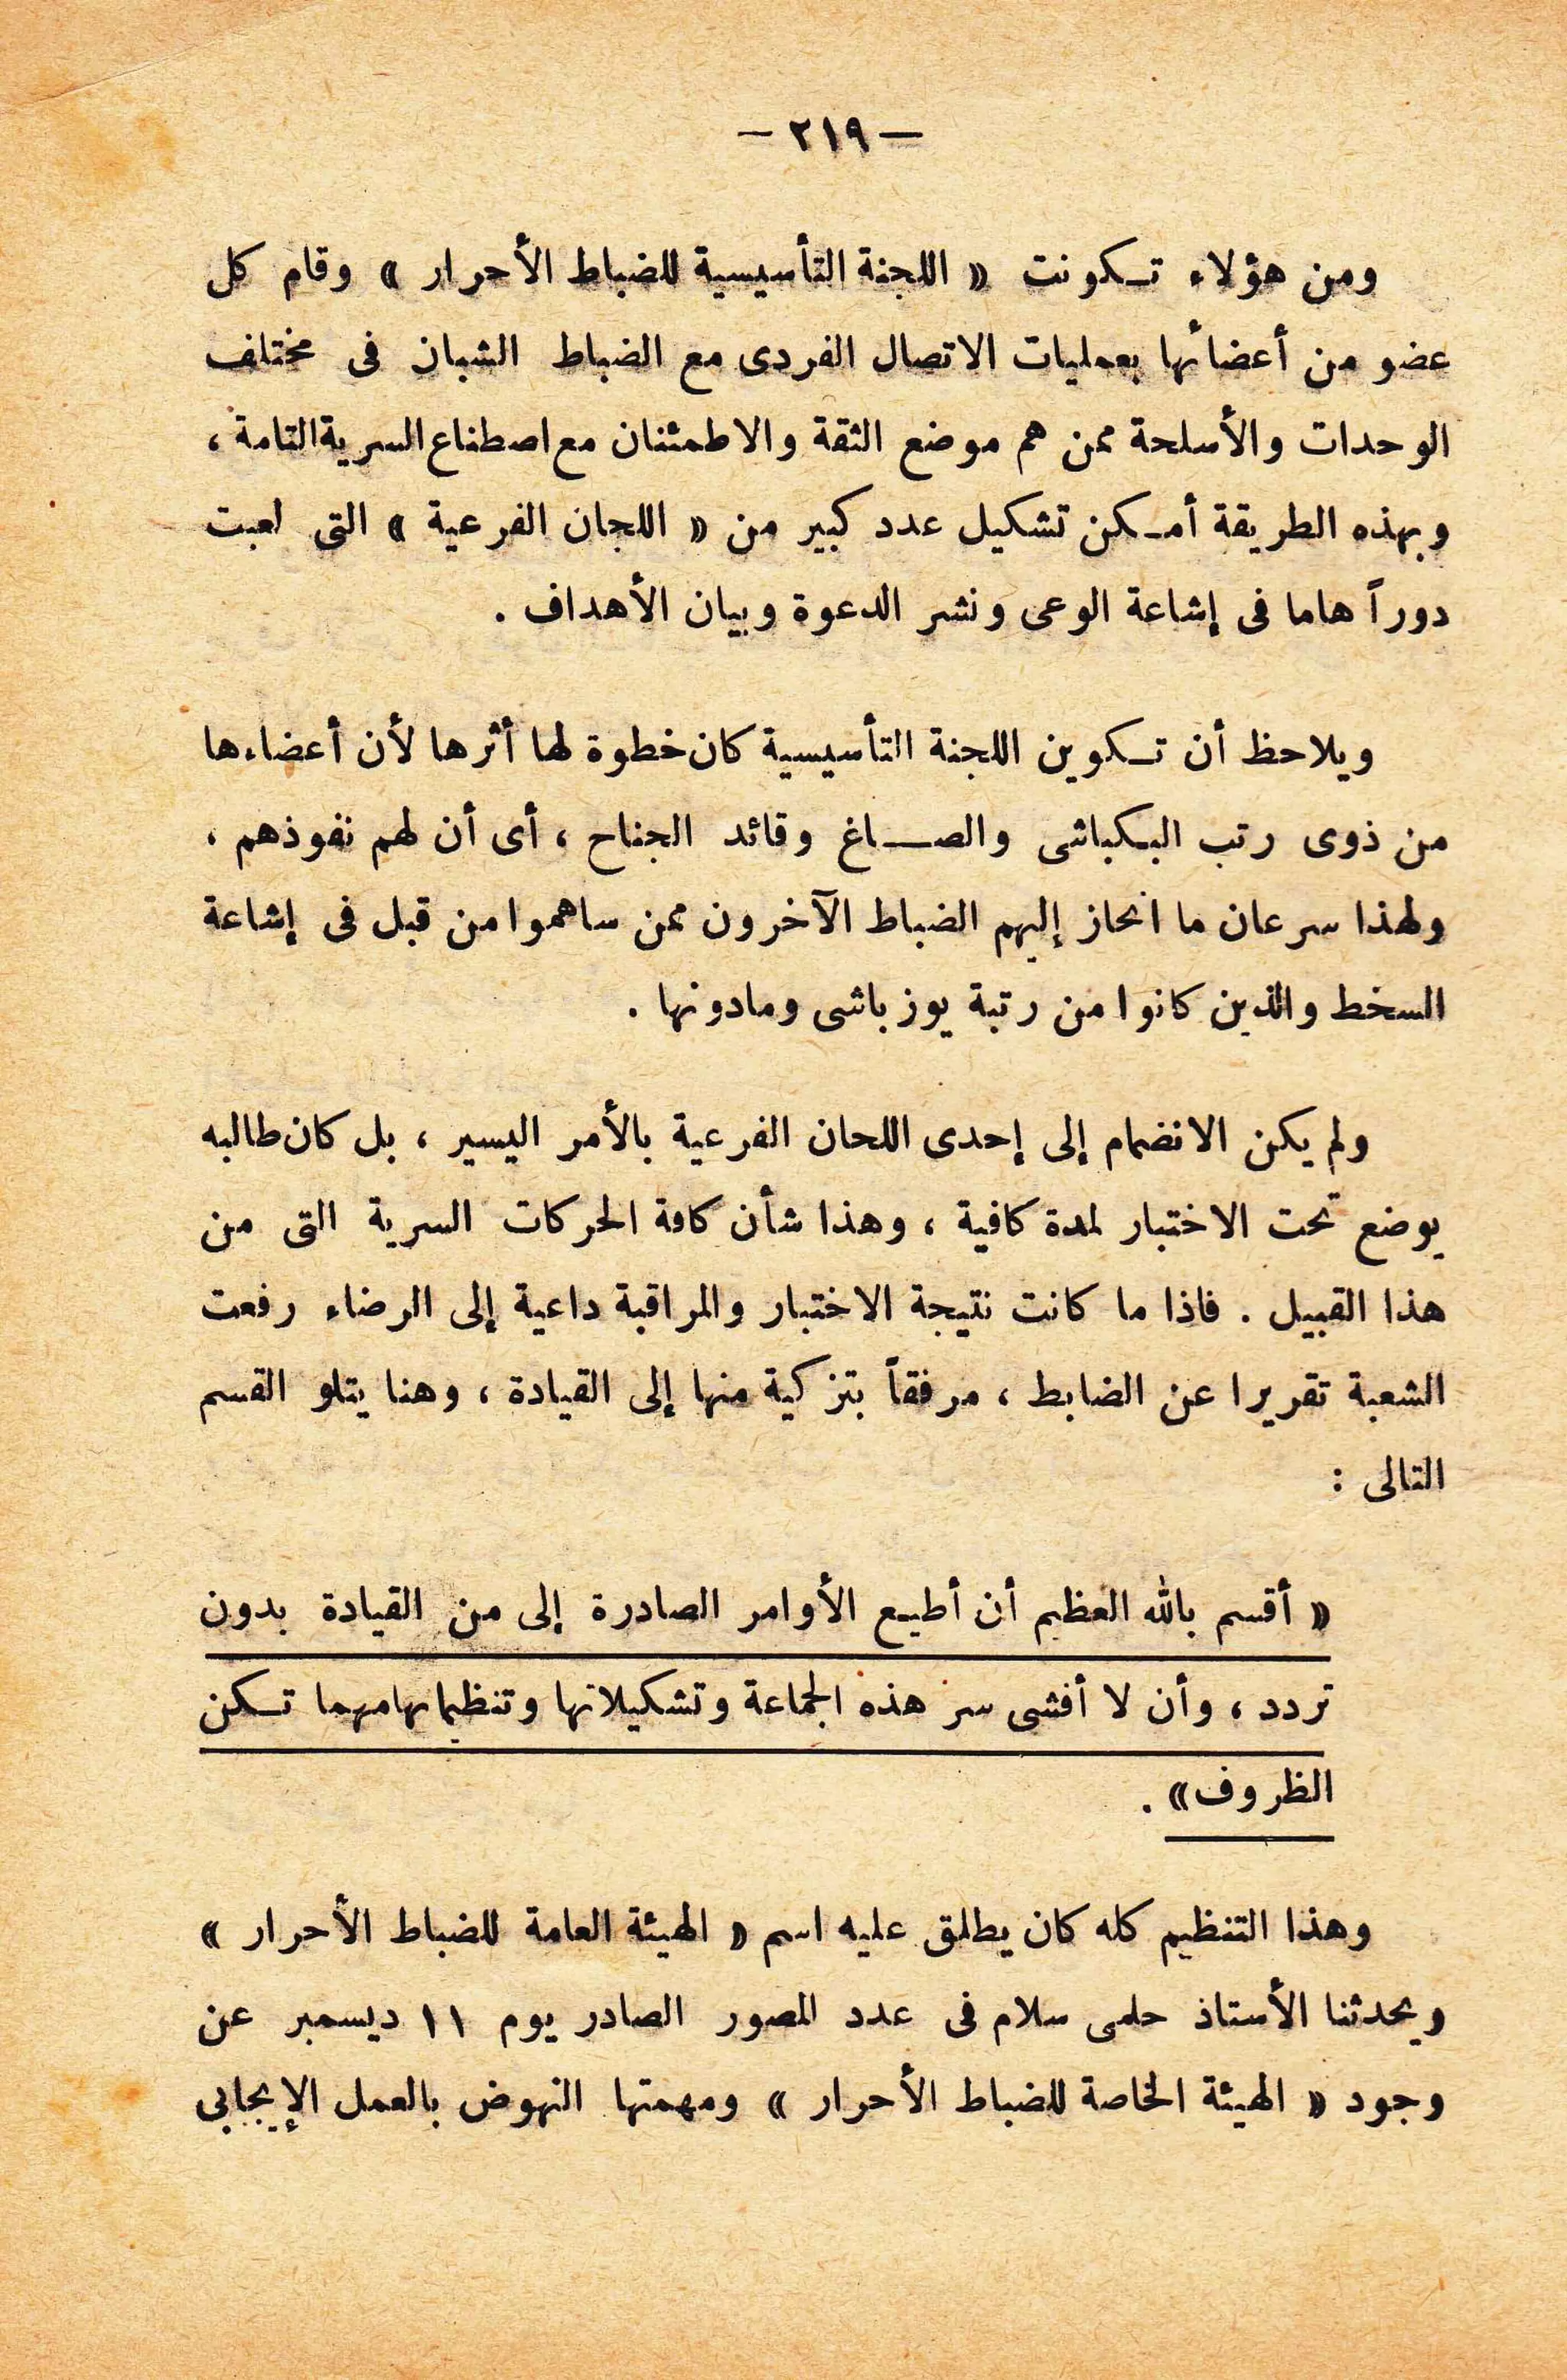 — ٢١٩ —
ومن هؤلاء تـكونت « اللجنة التأسيسية للضباط الأحرار » وقام كل
عضو من أعضائها بعمليات الاتصال الفردى مع الضباط الشبان فى مختلف
الوحدات والأسلحة ممن هم موضع الثقة والاطمئنان مع اصطناع السرية التامة ،
وبهذه الطريقة أمـكن تشكيل عدد كبير من « اللجان الفرعية » التى لعبت
دوراً هاما فى إشاعة الوعى ونشر الدعوة وبيان الأهداف .
ويلاحظ أن تـكوين اللجنة التأسيسية كان خطوة لها أثرها لأن أعضاءها
من ذوى رتب البـكباشى والصـــاغ وقائد الجناح ، أى أن لهم نفوذهم ،
ولهذا سرعان ما انحاز إليهم الضباط الآخرون ممن ساهموا من قبل فى إشاعة
السخط والذين كانوا من رتبة يوزباشى ومادونها .
ولم يكن الانضمام إلى إحدى اللحان الفرعية بالأمر اليسير ، بل كان طالبه
يوضع تحت الاختبار لمدة كافية ، وهذا شأن كافة الحركات السرية التى من
هذا القبيل . فاذا ما كانت نتيجة الاختبار والمراقبة داعية إلى الرضاء رفعت
الشعبة تقريرا عن الضابط ، مرفقاً بتزكية منها إلى القيادة ، وهنا يتلو القسم
التالى :
« أقسم بالله العظيم أن أطيـع الأوامر الصادرة إلى من القيادة بدون
تردد ، وأن لا أفشى سر هذه الجماعة وتشكيلاتها وتنظيماتها مهما تـكن
الظروف» .
وهذا التنظيم كله كان يطلق عليه اسم « الهيئة العامة للضباط الأحرار »
ويحدثنا الأستاذ حلمى سلام فى عدد المصور الصادر يوم ١١ ديسمبر عن
وجود « الهيئة الخاصة للضباط الأحرار » ومهمتها النهوض بالعمل الإيجابى